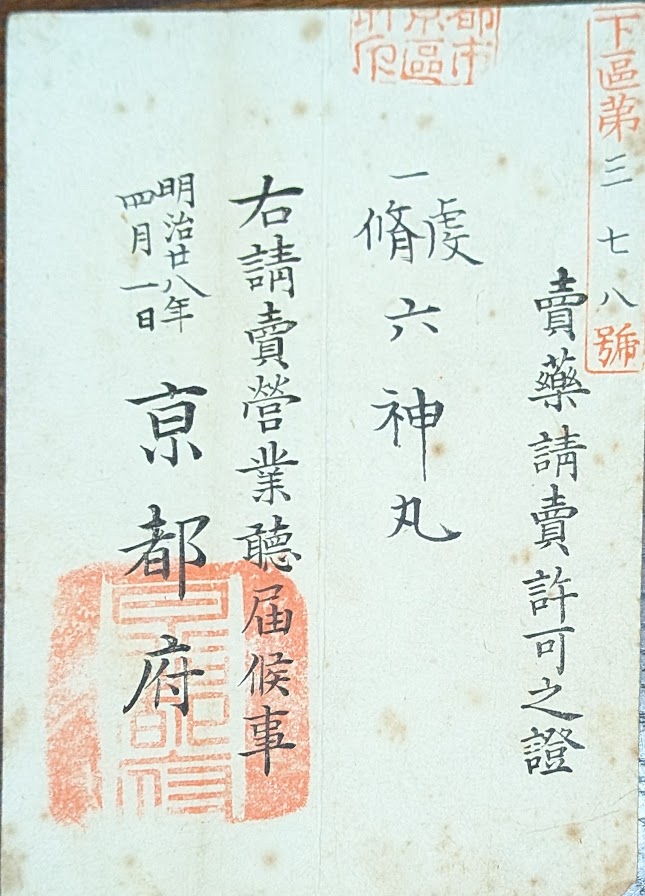 下區第三七八號
賣藥請賣許可之證
一虔脩六神丸
右請賣營業聽届候事
明治廿八年
四月一日
亰都府